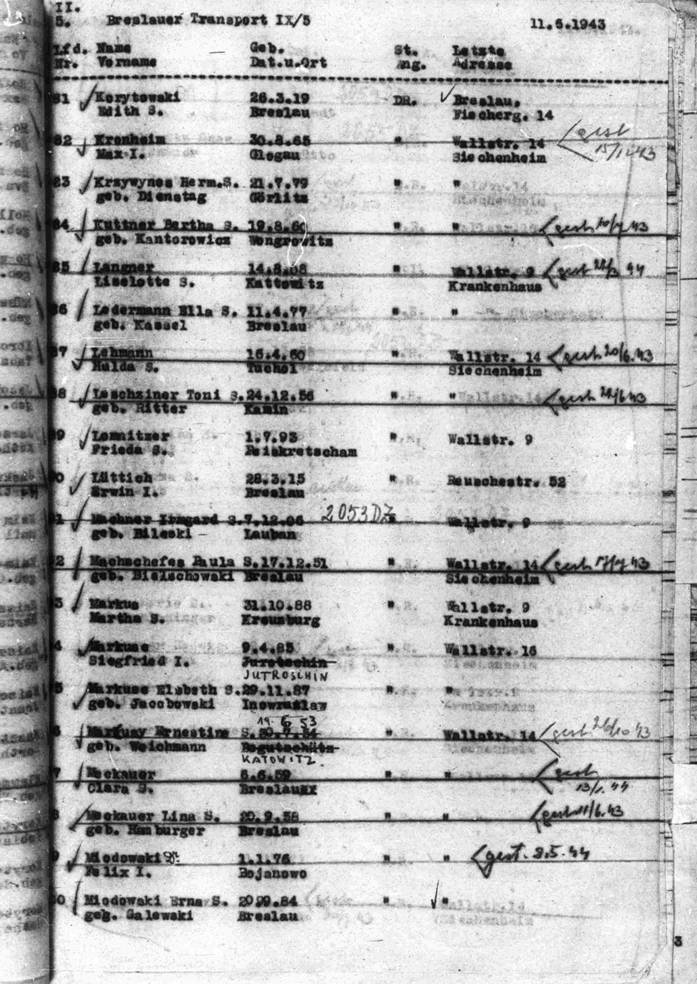 II.
5. Breslauer Transport IX/5 11.6.1943
Lfd. Name Geb. St. Letzte
Nr. Vorname Dat.u.Ort Ang. Adresse
81 Korytowski 26.3.19 DR. Breslau,
Edith S. Breslau Fischerg. 14
82 Kronheim 30.8.65 " Wallstr. 14 gest
Max I. Glogau Siechenheim 15/11 43
83 Krzywynos Herm.S. 21.7.79 " "
geb. Dienstag Görlitz
84 Kuttner Bertha S. 19.8.60 " " gest
geb. Kantorowicz Wongrowitz
85 Langner 14.8.08 " Wallstr. 9 gest
Liselotte S. Kattowitz Krankenhaus
86 Ledermann Ella S. 11.4.77 " "
geb. Kassel Breslau
87 Lehmann 16.4.60 " Wallstr. 14 gest 20/6.43
Hulda S. Tuchel Siechenheim
88 Leschziner Toni S. 24.12.56 " " gest
geb. Ritter Kamin
89 Lomnitzer 1.7.93 " Wallstr. 9
Frieda S. Peiskretscham
90 Lüttich 28.3.15 " Rauschestr. 52
Erwin I. Breslau
91 Machner Irmgard S. 7.12.06 2053 DZ " Wallstr. 9
geb. Bileski Lauban
92 Machschefes Paula S. 17.12.51 " Wallstr. 14 gest
geb. Bielschowski Breslau Siechenheim
3 Markus 31.10.88 " Wallstr. 9
Martha S. Kreuzburg Krankenhaus
4 Markuse 9.4.85 " Wallstr. 16
Siegfried I. Jurotschin
JUTROSCHIN
5 Markuse Elsbeth S. 29.11.87 " "
geb. Jacobowski Inowrazlaw
19. 6 53
6 Markusy Ernestine S. " Wallstr. 14 gest 26/10 43
geb. Weichmann Bogutschütz
KATOWITZ
7 Mockauer 6.6.59 " " gest
Clara S. Breslau 13/1. 44
8 Mockauer Lina S. 20.9.58 " " gest 11/6.43
geb. Hamburger Breslau
9 Miodowski 1.1.76 " " gest. 3.5.44
Felix I. Bojanowo
00 Miodowski Erna S. 20.9.84 " "
geb. Galewski Breslau
3